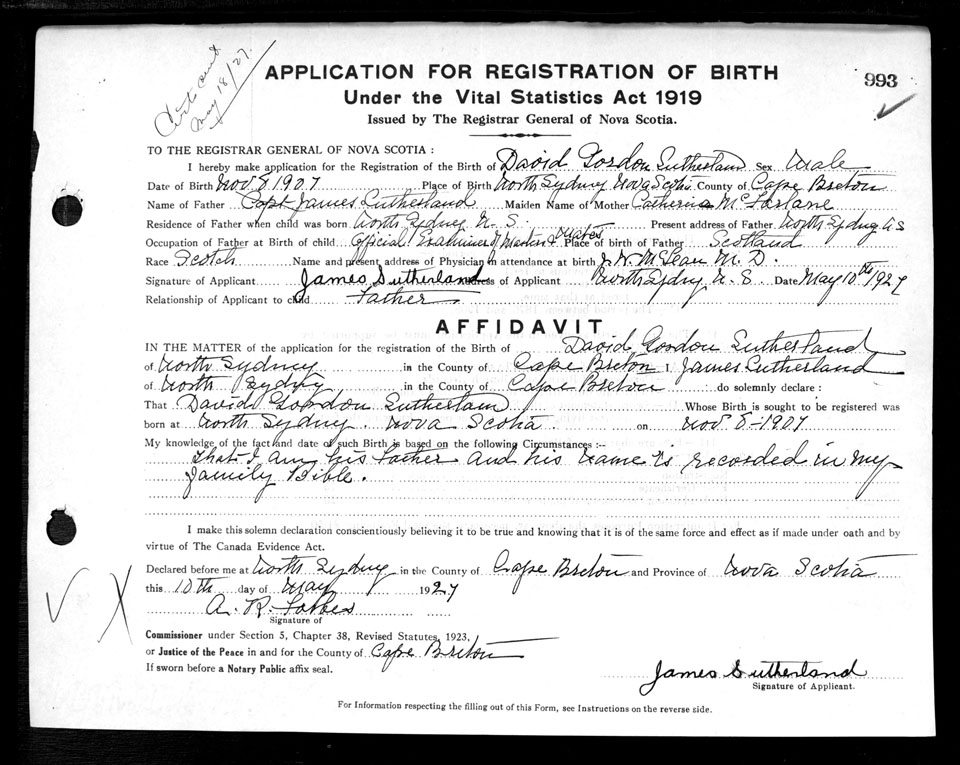 Certs cert.
May 18/27.
993
APPLICATION FOR REGISTRATION OF BIRTH
Under the Vital Statistics Act 1919
Issued by The Registrar General of Nova Scotia.
TO THE REGISTRAR GENERAL OF NOVA SCOTIA :
I hereby make application for the Registration of the Birth of David Gordon Sutherland Sex Male
Date of Birth Nov. 8 1907 Place of Birth North Sydney Nova Scotia County of Cape Breton
Name of Father Capt James Sutherland Maiden Name of Mother Catherine McFarlane
Residence of Father when child was born North Sydney N. S. Present address of Father North Sydney N S
Occupation of Father at Birth of child Official Examiner of Masters & Mates Place of birth of Father Scotland
Race Scotch Name and present address of Physician in attendance at birth McLean M. D.
Signature of Applicant James Sutherland Address of Applicant North Sydney N. S. Date May 10th 1927
Relationship of Applicant to child Father
AFFIDAVIT
IN THE MATTER of the application for the registration of the Birth of David Gordon Sutherland
of North Sydney in the County of Cape Breton I, James Sutherland
of North Sydney in the County of Cape Breton do solemnly declare :
That David Gordon Sutherland Whose Birth is sought to be registered was
born at North Sydney. Nova Scotia on Nov. 8-1907
My knowledge of the fact and date of such Birth is based on the following Circumstances :--
that I am his Father and his name is recorded in my
family Bible.
I make this solemn declaration conscientiously believing it to be true and knowing that it is of the same force and effect as if made under oath and by
virtue of The Canada Evidence Act.
Declared before me at North Sydney in the County of Cape Breton and Province of Nova Scotia
this 10th day of May 1927
A. R. Forbes
Signature of
Commissioner under Section 5, Chapter 38, Revised Statutes, 1923,
or Justice of the Peace in and for the County of Cape Breton
If sworn before a Notary Public affix seal.
James Sutherland
Signature of Applicant.
For Information respecting the filling out of this Form, see Instructions on the reverse side.